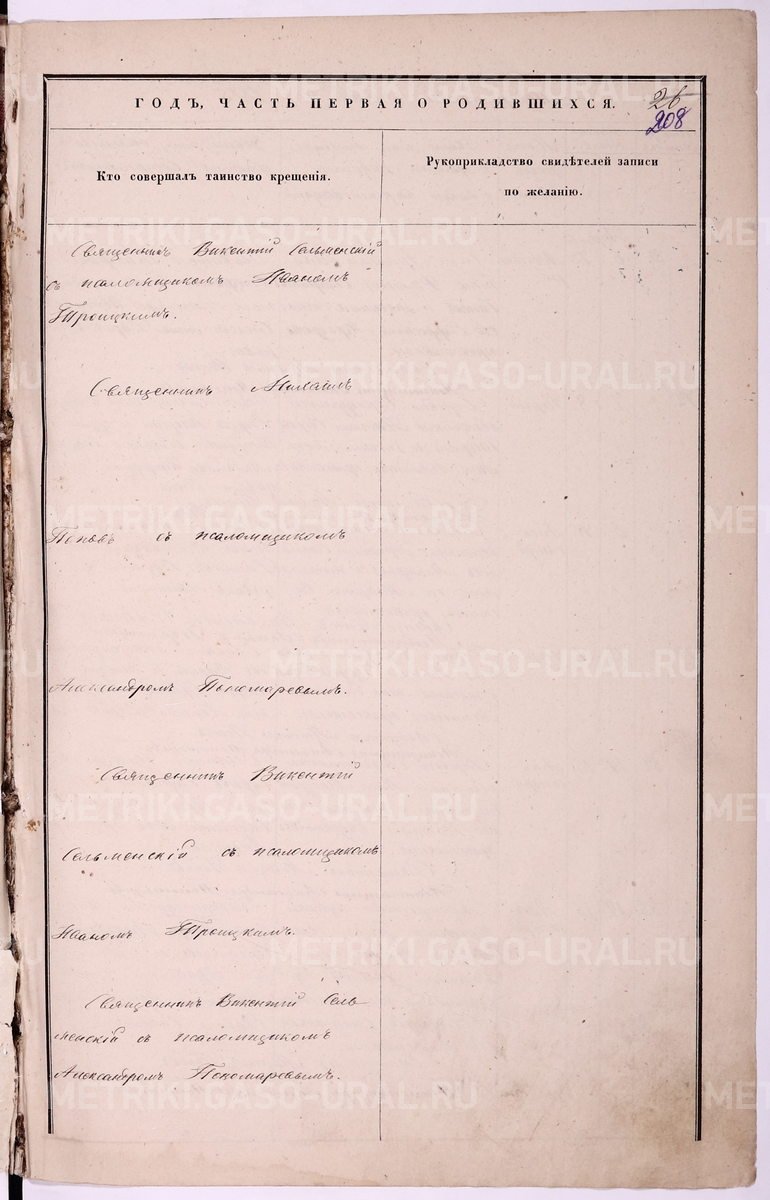 ГОДЪ, ЧАСТЬ ПЕРВАЯ О РОДИВШИХСЯ.
26
208
Кто совершалъ таинство крещенія.
Рукоприкладство свидѣтелей записи
по желанію.
Священникъ Викентій Сельменскій
съ псаломщикомъ Иваномъ
Троицкимъ.
Священникъ Михаилъ
Поповъ съ псаломщикомъ
Александромъ Пономаревымъ.
Священникъ Викентій
Сельменскій съ псаломщикомъ
Иваномъ Троицкимъ.
Священникъ Викентій Сель
менскій съ псаломщикомъ
Александромъ Пономаревымъ.
METRIKI.GASO-URAL.RU